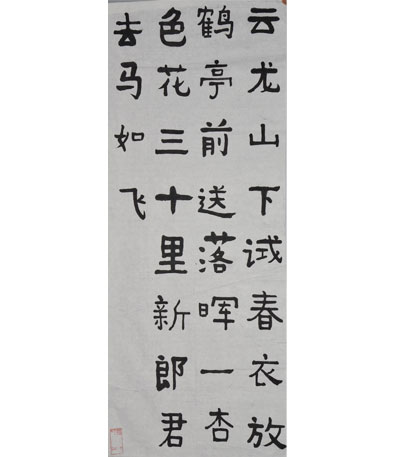 云尤山下试春衣放
鹤亭前送落晖一杏
色花三十里新郎君
去马如飞